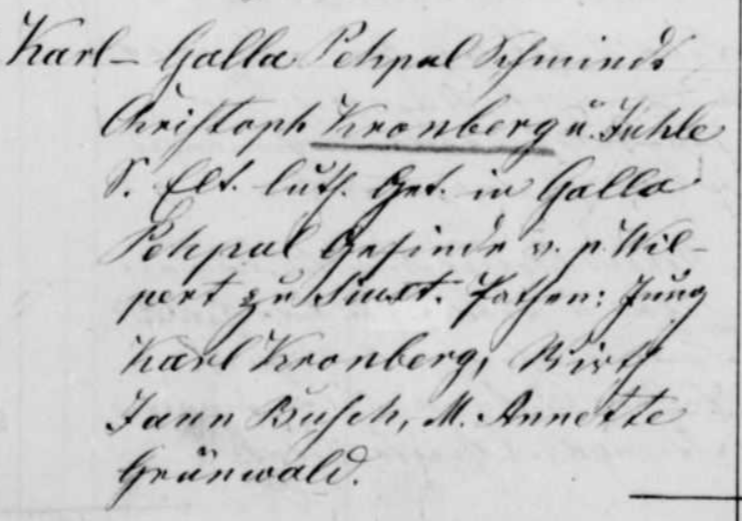 Karl – Galla Pehpal Schmieds
Christoph Kronberg u. Juhle
S. Elt. luth. Get. in Galla
Pehpal Gesinde v. p. Wil-
pert zu Siuxt. Pathen: Jung
Karl Kronberg, Wirth
Jann Busch, M. Annette
Grünwald.